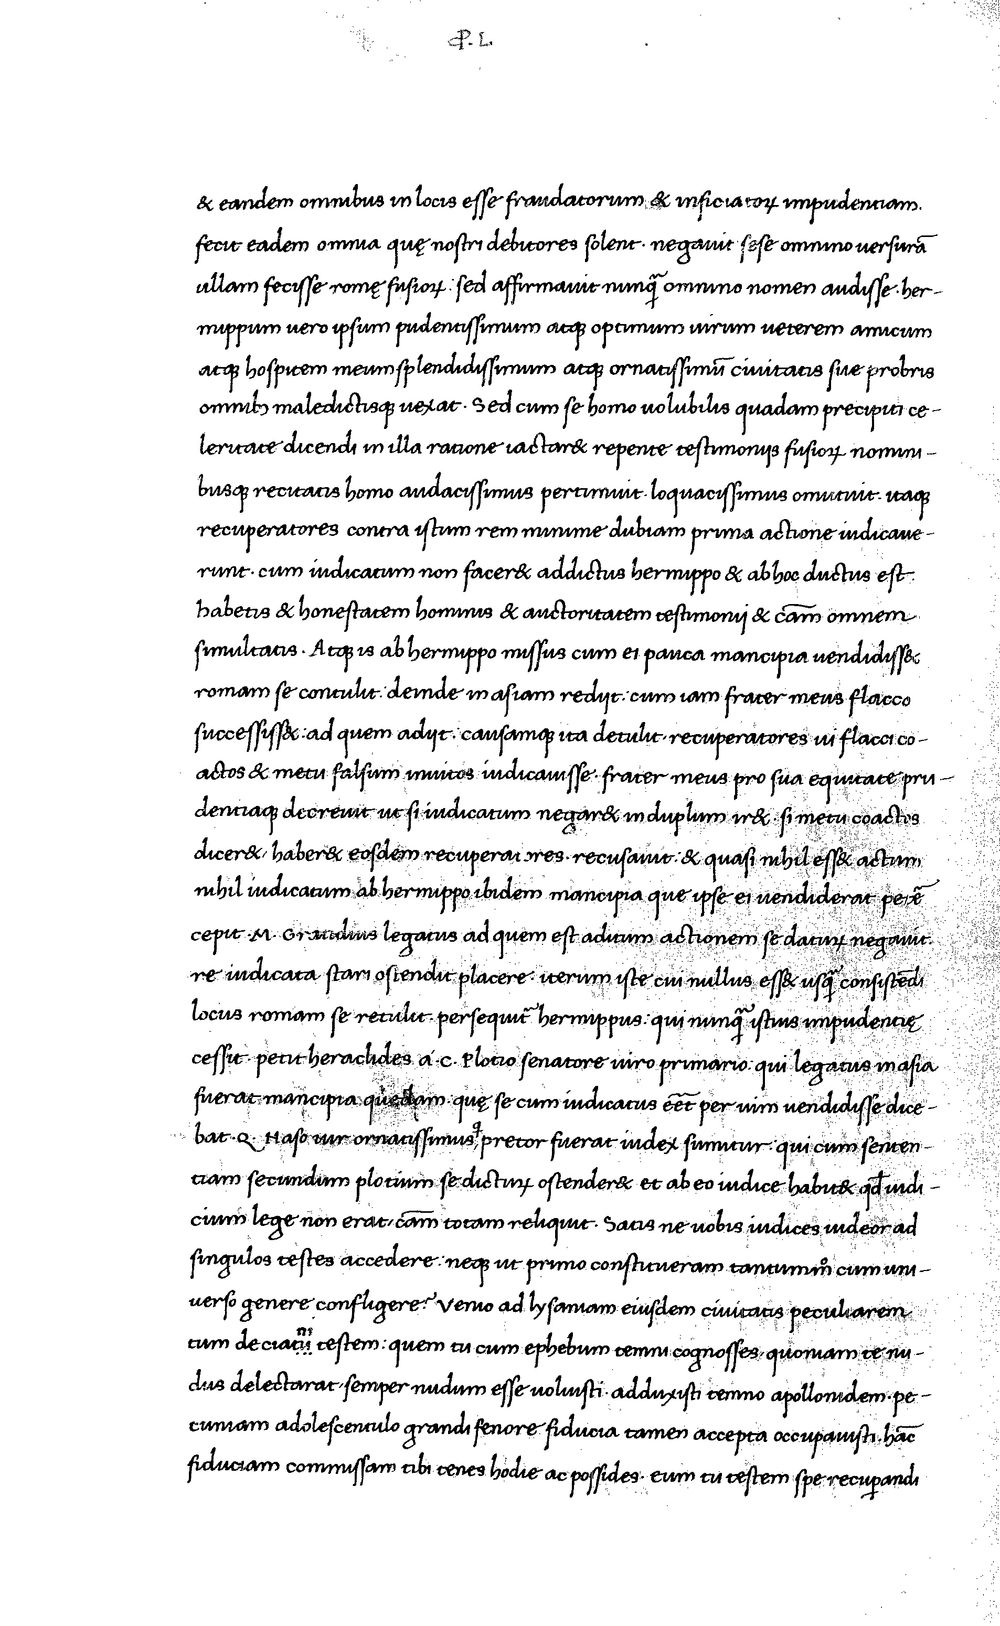 P. L
& eandem omnibus in locis esse fraudatorum & inficiatoꝝ impudentiam.
fecit eadem omnia quę nostri debitores solent. negauit sese omnino uersurā
ullam fecisse romę fusioꝝ: sed affirmauit nunꝗ̃ omnino nomen audisse. her-
mippum uero ipsum pudentissimum atqꝫ optimum uirum ueterem amicum
atqꝫ hospitem meum splendidissimum atqꝫ ornatissimū ciuitatis sue probris
omnibꝫ maledictisqꝫ uexat. Sed cum se homo uolubilis quadam precipiti ce-
leritate dicendi in illa ratione iactar& repente testimonijs fusioꝝ nomini-
busqꝫ recitatis homo audacissimus pertimuit. loquacissimus omutuit. itaqꝫ
recuperatores contra istum rem minime dubiam prima actione iudicaue-
runt. cum iudicatum non facer& addictus hermippo & ab hoc ductus est.
habetis & honestatem hominis & auctoritatem testimonij & cām omnem
simultatis. Atqꝫ is ab hermippo missus cum ei pauca mancipia uendidiss&
romam se contulit: deinde in asiam redijt: cum iam frater meus flacco
successiss&: ad quem adijt: causamqꝫ ita detulit. recuperatores ui flacci co-
actos & metu falsum inuitos iudicauisse. frater meus pro sua equitate pru-
dentiaqꝫ decreuit ut si iudicatum negar& in duplum ir& . si metu coactos
dicer&, haber& eosdem recuperatores. recusauit: & quasi nihil ess& actum
nihil iudicatum ab hermippo ibidem mancipia que ipse ei uendiderat petē
cepit. M. Gratidius legatus ad quem est aditum actionem se datuꝝ negauit.
re iudicata stari ostendit placere: iterum iste cui nullus ess& usꝗ̃ consistēdi
locus romam se retulit. persequit̃ hermippus: qui nunꝗ̃ istius impudentię
cessit. petit heraclides a .C. Plotio senatore uiro primario: qui legatus in asia
fuerat mancipia quedam. quę se cum iudicatus eēt per uim uendidisse dice-
bat. Q. Naso uir ornatissimus ꝗ pretor fuerat iudex sumitur. qui cum senten-
tiam secundum plotium se dictuꝝ ostender& et ab eo iudice habit& qđ iudi-
cium lege non erat, cām totam reliquit. Satis ne uobis iudices uideor ad
singulos testes accedere: neqꝫ ut primo constitueram tantummō cum uni-
uerso genere confligere? Venio ad lysaniam eiusdem ciuitatis peculiarem
tum deciatū testem: quem tu cum ephebum temni cognosses, quoniam te nu-
dus delectarat, semper nudum esse uoluisti. adduxisti temno apollonidem. pe-
cuniam adolescentulo grandi fenore fiducia tamen accepta occupauisti. hāc
fiduciam commissam tibi tenes hodie ac possides. eum tu testem spe recuꝑandi